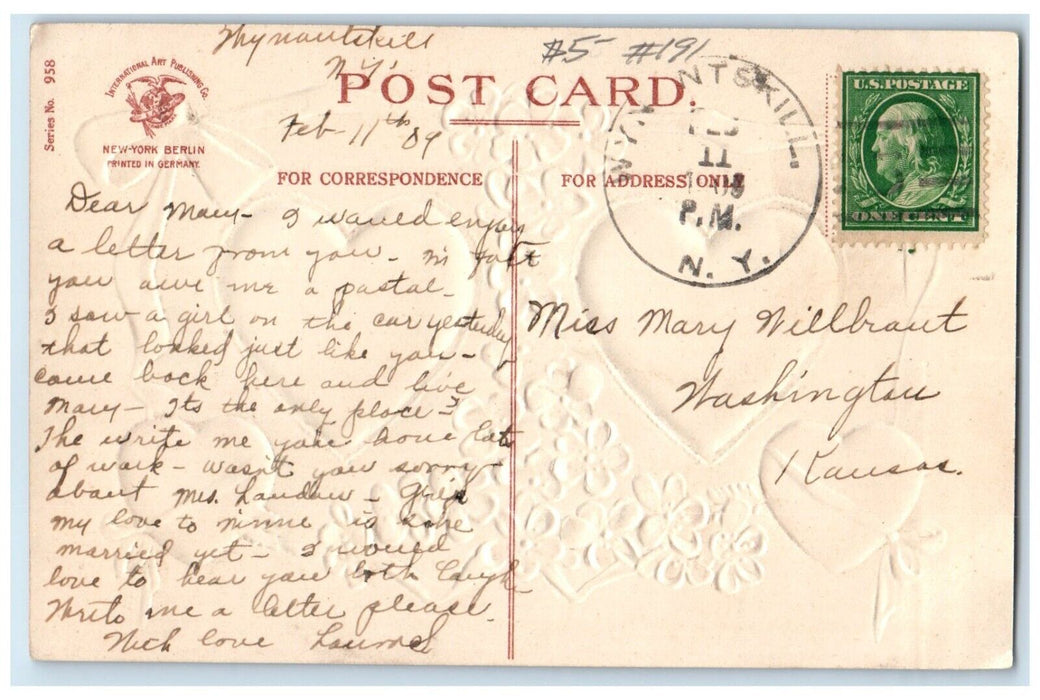 Wynantskill
N.Y.
$5- #191
Series No. 958
INTERNATIONAL ART PUBLISHING CO.
NEW-YORK BERLIN
PRINTED IN GERMANY.
POST CARD.
Feb 11th 09
FOR CORRESPONDENCE
FOR ADDRESS ONLY
WYNANTSKILL
FEB
11
P.M.
N. Y.
U.S. POSTAGE
ONE CENT
Dear Mary - I would enjoy
a letter from you - in fact
you owe me a postal -
I saw a girl on the car yesterday
that looked just like you -
come back here and live
Mary - Its the only place -
The write me you have lots
of work - wasn't you sorry
about Mrs. - Give
my love to Minnie is she
married yet - I would
love to hear you both laugh -
Write me a letter please
love
Miss Mary Willbrant
Washington
Kansas.